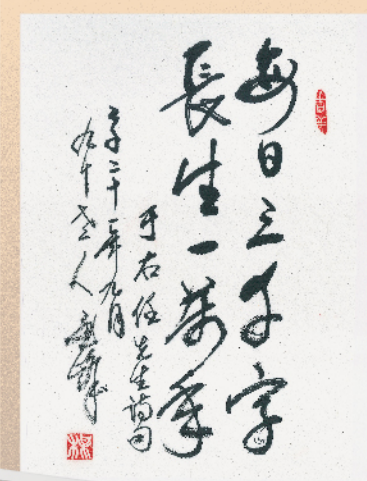 每日三千字
長生一萬年
于右任先生詩句
二十一年九月
九十老人